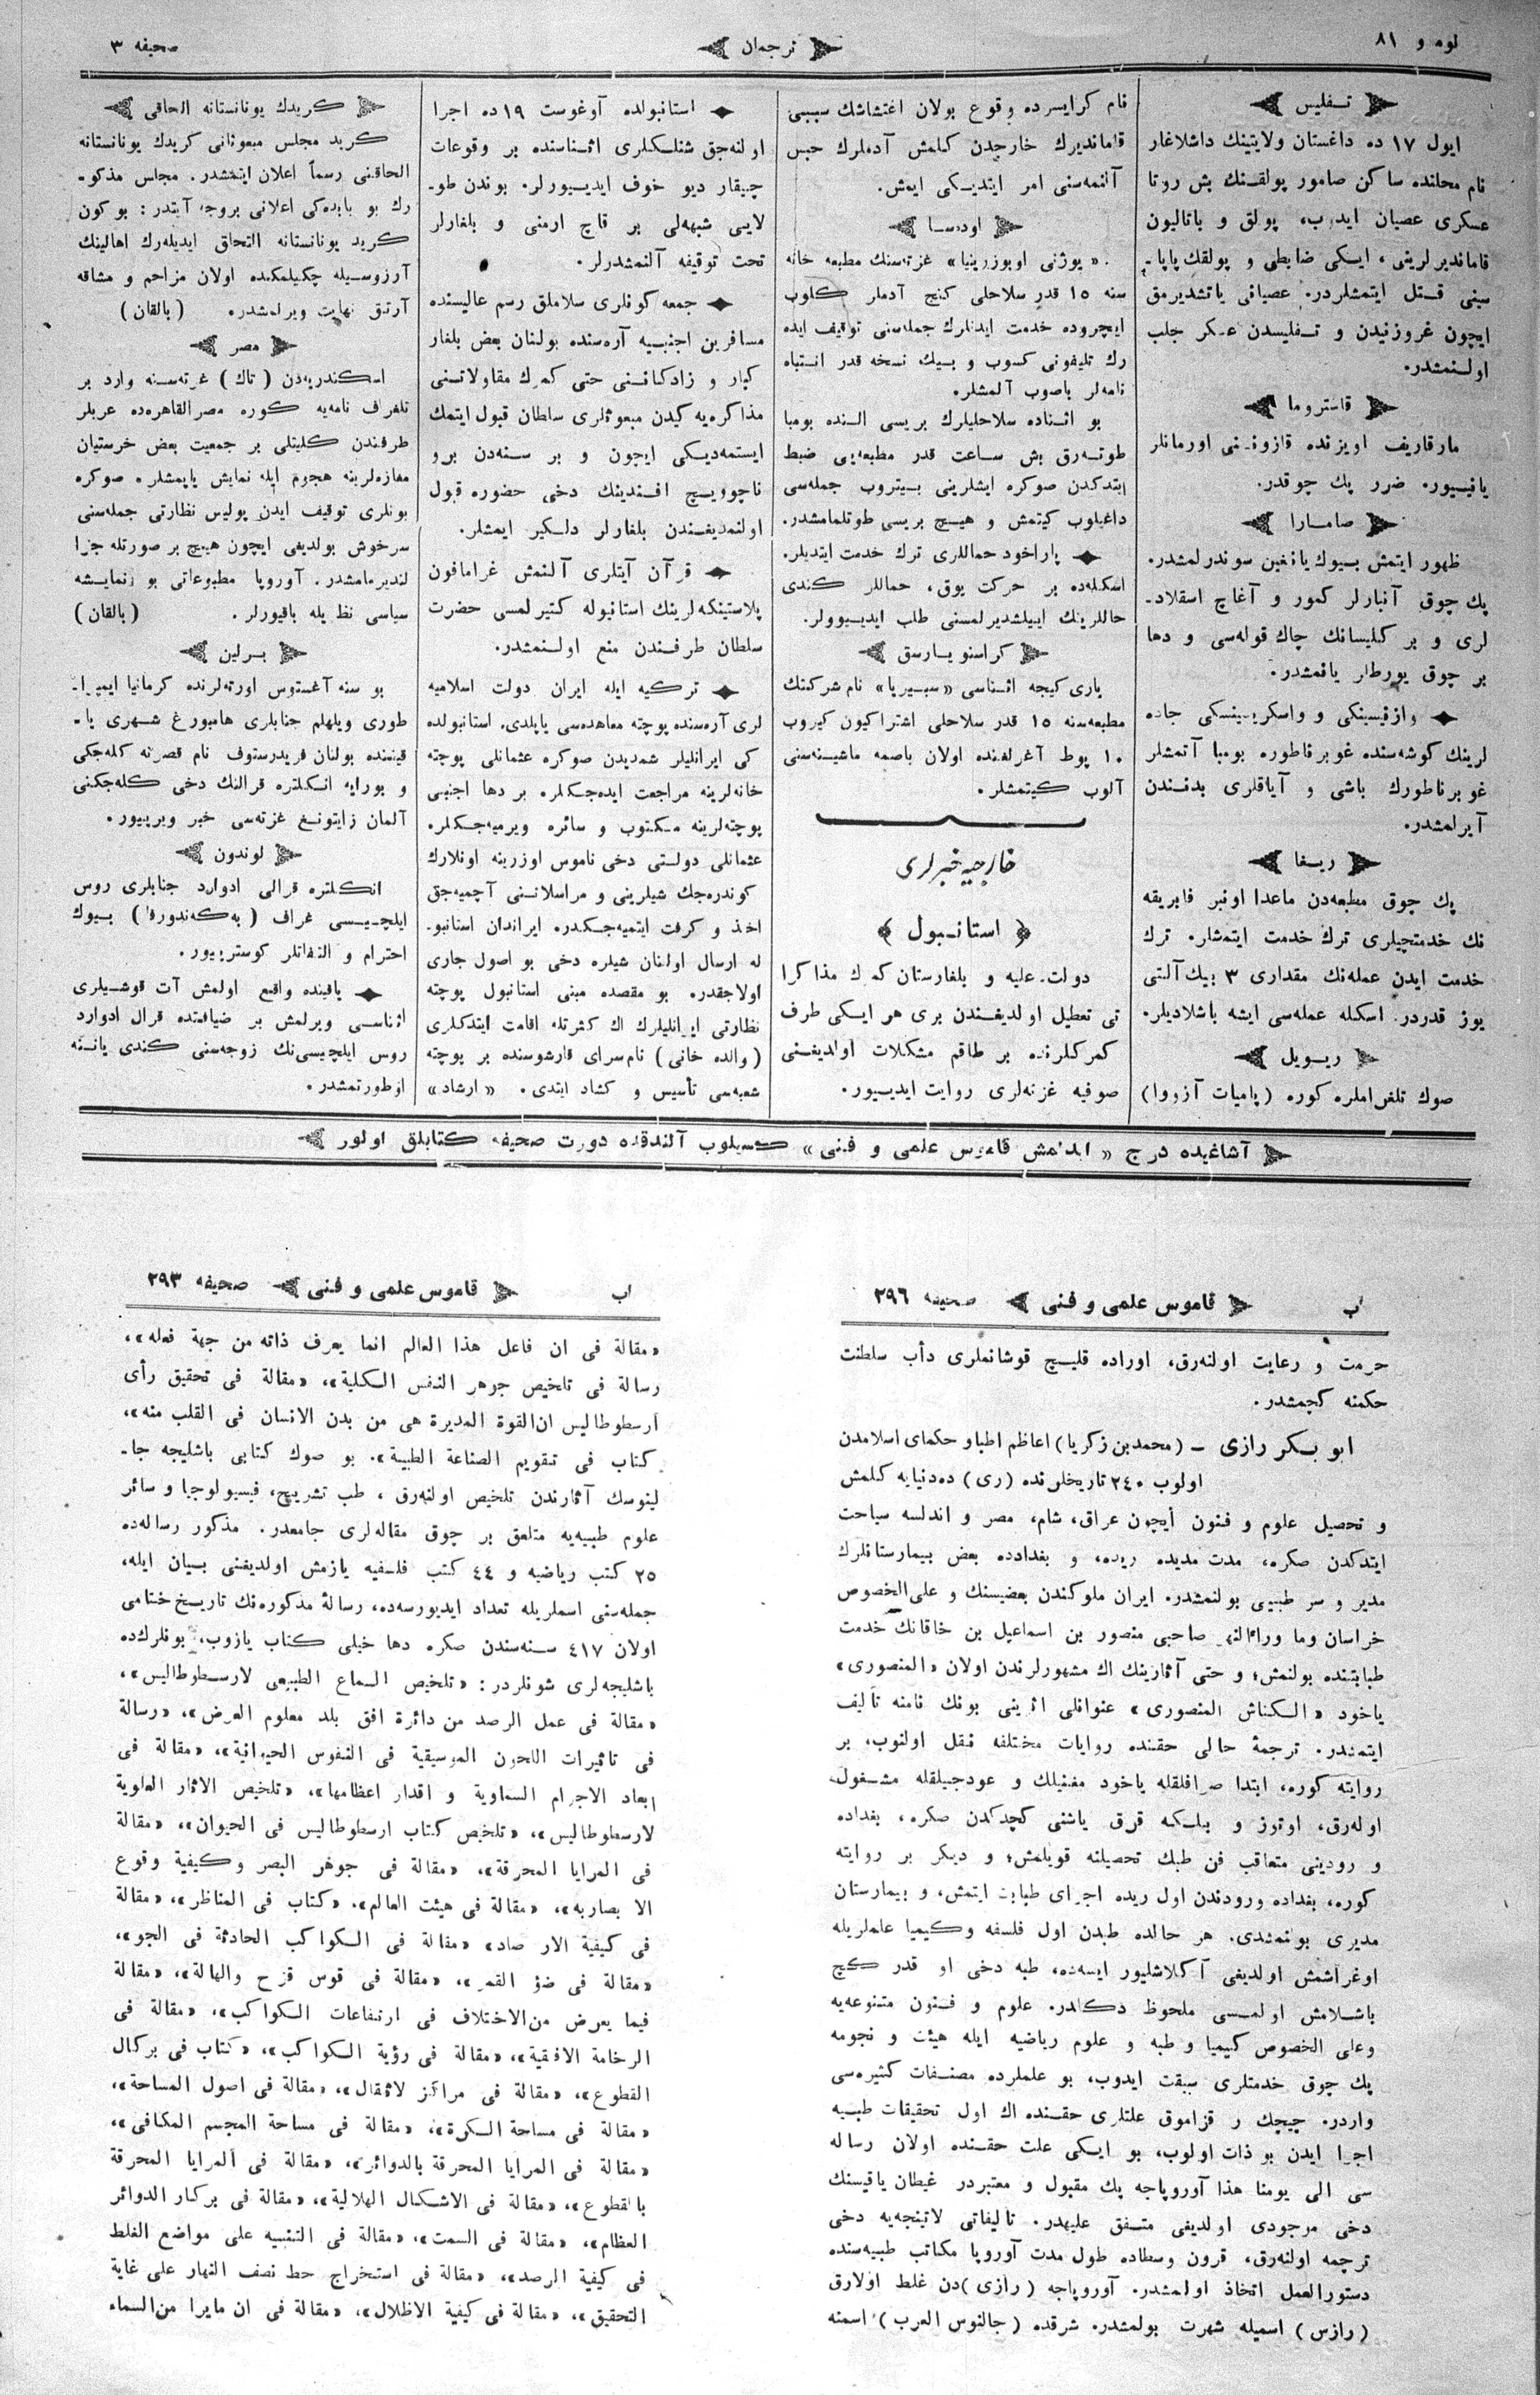 نومرو ٨١
ترجمان
صحيفه ٣
تفليس
ايول ١٧ ده داغستان ولايتينك داشلاغار
نام محلنده ساكن صامور پولقنك بش روتا
عسكرى عصيان ايدوب، پولق و باتاليون
قامانديرلرينى، ايكى ضابطى و پولقك پاپا-
سينى قتل ايتمشلردر. عصيانى ياتشديرمق
ايچون غروزنيدن و تفليسدن عسكر جلب
اولنمشدر.
قاستروما
مارقاريف اويزنده قازونينى اورمانلر
يانييور. ضرر پك چوقدر.
صامارا
ظهور ايتمش بيوك يانغين سوندرلمشدر.
پك چوق آنبارلر كمور و آغاچ اسقلاد-
لرى و بر كليسانك چاك قوله‌سى و دها
بر چوق يورطلر يانمشدر.
وازنيسينكى و واسكريسينسكى جاده
لرينك كوشه‌سنده غوبرناطوره بومبا آتمشلر
غوبرناطورك باشى و آياقلرى بدنندن
آيرلمشدر.
ريغا
پك چوق مطبعه‌دن ماعدا اونبر فابريقه
نك خدمتچيلرى ترك خدمت ايتمشلر. ترك
خدمت ايدن عمله‌نك مقدارى ٣ بيك آلتى
يوز قدردر. اسكله عمله‌سى ايشه باشلاديلر.
ريويل
صوك تلغراملره كوره (پاميات آزووا)
نام كرايسرده وقوع بولان اغتشاشك سببى
قامانديرك خارجدن كلمش آدملرك حبس
آلنمه‌سنى امر ايتديكى ايمش.
اودسا
«يوژنى اوبوزرينيا» غزته‌سنك مطبعه خانه
سنه ١٥ قدر سلاحلى كنج آدملر كلوب
ايچروده خدمت ايدنلرك جمله‌سنى توقيف ايده
رك تليفونى كسوب و بيك نسخه قدر انتباه
نامه‌لر باصوب آلمشلر.
بو اثناده سلاحليلرك بريسى النده بومبا
طوته‌رق بش ساعت قدر مطبعه‌يى ضبط
ايتدكدن صوكره ايشلرينى بيتروب جمله‌سى
داغيلوب كيتمش و هيچ بريسى طوتلمامشدر.
پاراخود حماللرى ترك خدمت ايتديلر.
اسكله‌ده بر حركت يوق، حماللر كندى
حاللرينك اييلشديرلمسنى طلب ايدييورلر.
كراسنويارسق
يارى كيجه اثناسى «سيبيريا» نام شركتك
مطبعه‌سنه ١٥ قدر سلاحلى اشتراكيون كيروب
١٠ پوط آغرلغنده اولان باصمه ماشينه‌سنى
آلوب كيتمشلر.
خارجيه خبرلرى
استانبول
دولت عليه و بلغارستان كمرك مذاكرا
تى تعطيل اولديغندن برى هر ايكى طرف
كمركلرنده بر طاقم مشكلات اولديغنى
صوفيه غزته‌لرى روايت ايدييور.
استانبولده آوغوست ١٩ ده اجرا
اولنه‌جق شنلكلرى اثناسنده بر وقوعات
چيقار ديو خوف ايدييورلر. بوندن طو-
لايى شبهه‌لى بر قاچ ارمنى و بلغارلر
تحت توقيفه آلنمشدرلر.
جمعه كونلرى سلاملق رسم عاليسنده
مسافرين اجنبيه آره‌سنده بولنان بعض بلغار
كبار و زادكاننى حتى كمرك مقاولاتنى
مذاكره‌يه كيدن مبعوثلرى سلطان قبول ايتمك
ايستمه‌ديكى ايچون و بر سنه‌دن برو
ناچوويچ افندينك دخى حضوره قبول
اولنمديغندن بلغارلر دلكير ايمشلر.
قرآن آيتلرى آلنمش غرامافون
پلاستينكه‌لرينك استانبوله كتيرلمسى حضرت
سلطان طرفندن منع اولنمشدر.
تركيه ايله ايران دولت اسلاميه
لرى آره‌سنده پوچته معاهده‌سى ياپلدى. استانبولده
كى ايرانليلر شمديدن صوكره عثمانلى پوچته
خانه‌لرينه مراجعت ايده‌جكلر. بر دها اجنبى
پوچته‌لرينه مكتوب و سائره ويرميه‌جكلر.
عثمانلى دولتى دخى ناموس اوزرينه اونلارك
كوندره‌جك شيلرينى و مراسلاتنى آچميه‌جق
اخذ و كرفت ايتميه‌جكدر. ايراندان استانبو-
له ارسال اولنان شيلره دخى بو اصول جارى
اولاجقدر. بو مقصده مبنى استانبول پوچته
نظارتى ايرانليلرك اك كثرتله اقامت ايتدكلرى
(والده خانى) نام سراى قارشوسنده بر پوچته
شعبه‌سى تأسيس و كشاد ايتدى. «ارشاد»
كريدك يونانستانه الحاقى
كريد مجلس مبعوثانى كريدك يونانستانه
الحاقنى رسماً اعلان ايتمشدر. مجلس مذكو-
رك بو بابده‌كى اعلانى بروجه آتيدر: بو كون
كريد يونانستانه التحاق ايديله‌رك اهالينك
آرزوسيله چكيلمكده اولان مزاحم و مشاقه
آرتق نهايت ويرلمشدر. (بالقان)
مصر
اسكندريه‌دن (تاك) غزته‌سنه وارد بر
تلغراف نامه‌يه كوره مصر القاهره‌ده عربلر
طرفندن كليتلى بر جمعيت بعض خرستيان
مغازه‌لرينه هجوم ايله نمايش ياپمشلر. صوكره
بونلرى توقيف ايدن پوليس نظارتى جمله‌سنى
سرخوش بولديغى ايچون هيچ بر صورتله جزا
لنديرمامشدر. آوروپا مطبوعاتى بو نمايشه
سياسى نظريله باقيورلر. (بالقان)
برلين
بو سنه آغستوس اورته‌لرنده كرمانيا ايمپرا-
طورى ويلهلم جنابلرى هامبورغ شهرى يا-
قيننده بولنان فريدرستوف نام قصرنه كله‌جكى
و بورايه انكلتره قرالنك دخى كله‌جكنى
آلمان زايتونغ غزته‌سى خبر ويرييور.
لوندون
انكلتره قرالى ادوارد جنابلرى روس
ايلچيسى غراف (به‌كه‌ندورف) بيوك
احترام و التفاتلر كوسترييور.
ياقينده واقع اولمش آت قوشيلرى
اثناسى ويرلمش بر ضيافتده قرال ادوارد
روس ايلچيسى‌نك زوجه‌سنى كندى يانه
اوطورتمشدر.
آشاغيده درج ايدلمش «قاموس علمى و فنى» كسيلوب آلندقده دورت صحيفه كتابلق اولور
اب قاموس علمى و فنى صحيفه ٢٩٦
حرمت و رعايت اولنه‌رق، اوراده قليچ قوشانملرى دأب سلطنت
حكمنه كچمشدر.
ابو بكر رازى – (محمد بن زكريا) اعاظم اطبا و حكماى اسلامدن
اولوب ٢٤٠ تاريخلرنده (رى) ده دنيايه كلمش
و تحصيل علوم و فنون ايچون عراق، شام، مصر و اندلسه سياحت
ايتدكدن صكره، مدت مديده ريده، و بغدادده بعض بيمارستانلرك
مدير و سر طبيبى بولنمشدر. ايران ملوكندن بعضيسنك و على الخصوص
خراسان وما وراء النهر صاحبى منصور بن اسماعيل بن خاقانك خدمت
طبابتنده بولنمش؛ و حتى آثارينك اك مشهورلرندن اولان «المنصورى»
ياخود «الكناش المنصورى» عنوانلى اثرينى بونك نامنه تأليف
ايتمشدر. ترجمهٔ حالى حقنده روايات مختلفه نقل اولنوب، بر
روايته كوره، ابتدا صرافلقله ياخود مغنيلك و عودجيلقله مشغول
اوله‌رق، اوتوز و بلكه قرق ياشنى كچدكدن صكره، بغداده
و رودينى متعاقب فن طبك تحصيلنه قويلمش؛ و ديكر بر روايته
كوره، بغداده ورودندن اول ريده اجراى طبابت ايتمش، و بيمارستان
مديرى بولنمشدى. هر حالده طبدن اول فلسفه و كيميا علملريله
اوغراشمش اولديغى آكلاشليور ايسه‌ده، طبه دخى او قدر كچ
باشلامش اولمسى ملحوظ دكلدر. علوم و فنون متنوعه‌يه
وعلى الخصوص كيميا و طبه و علوم رياضيه ايله هيئت و نجومه
پك چوق خدمتلرى سبقت ايدوب، بو علملرده مصنفات كثيره‌سى
واردر. چيچك و قزاموق علتلرى حقنده اك اول تحقيقات طبيه
اجرا ايدن بو ذات اولوب، بو ايكى علت حقنده اولان رساله
سى الى يومنا هذا آوروپاجه پك مقبول و معتبردر غيطان ياقيسنك
دخى موجودى اولديغى متفق عليهدر. تأليفاتى لاتينجه‌يه دخى
ترجمه اولنه‌رق، قرون وسطاده طول مدت آوروپا مكاتب طبيه‌سنده
دستورالعمل اتخاذ اولمشدر. آوروپاجه (رازى) دن غلط اولارق
(رازس) اسميله شهرت بولمشدر. شرقده (جالنوس العرب) اسمنه
اب قاموس علمى و فنى صحيفه ٢٩٣
«مقالة فى ان فاعل هذا العالم انما يعرف ذاته من جهة فعله»،
رسالة فى تلخيص جوهر النفس الكلية»، «مقالة فى تحقيق رأى
ارسطوطاليس ان القوة المديرة هى من بدن الانسان فى القلب منه»،
كتاب فى تقويم الصناعة الطبية». بو صوك كتابى باشليجه جا-
لينوسك آثارندن تلخيص اولنه‌رق، طب تشريح، فيسيولوجيا و سائر
علوم طبيه‌يه متعلق بر چوق مقاله‌لرى جامعدر. مذكور رساله‌ده
٢٥ كتب رياضيه و ٤٤ كتب فلسفيه يازمش اولديغنى بيان ايله،
جمله‌سنى اسملريله تعداد ايديورسه‌ده، رسالهٔ مذكوره‌نك تاريخ ختامى
اولان ٤١٧ سنه‌سندن صكره دها خيلى كتاب يازوب، بونلرك‌ده
باشليجه‌لرى شونلردر: «تلخيص السماع الطبيعى لارسطوطاليس»،
«مقالة فى عمل الرصد من دائرة افق بلد معلوم العرض»، «رسالة
فى تاثيرات اللحون الموسيقية فى النفوس الحيوانية»، «مقالة فى
ابعاد الاجرام السماوية و اقدار اعظامها»، «تلخيص الاثار العلوية
لارسطوطاليس»، «تلخيص كتاب ارسطوطاليس فى الحيوان»، «مقالة
فى المرايا المحرقة»، «مقالة فى جوهر البصر و كيفية وقوع
الا بصار به»، «مقالة فى هيئت العالم»، «كتاب فى المناظر»، «مقالة
فى كيفية الار صاد» «مقالة فى الكواكب الحادثة فى الجو»،
«مقالة فى ضؤ القمر»، «مقالة فى قوس قزح والهالة»، «مقالة
فيما يعرض من الاختلاف فى ارتفاعات الكواكب»، «مقالة فى
الرخامة الافقية»، «مقالة فى رؤية الكواكب»، «كتاب فى بركال
القطوع»، «مقالة فى مراكز لاثقال»، «مقالة فى اصول المساحة»،
«مقالة فى مساحة الكرة»، «مقالة فى مساحة المجسم المكافى»،
«مقالة فى المرايا المحرقة بالدوائر»، «مقالة فى المرايا المحرقة
بالقطوع»، «مقالة فى الاشكال الهلالية»، «مقالة فى بركار الدوائر
العظام»، «مقالة فى السمت»، «مقالة فى التنبيه على مواضع الغلط
فى كيفية الرصد»، «مقالة فى استخراج خط نصف النهار على غاية
التحقيق»، «مقالة فى كيفية الاظلال»، «مقالة فى ان مايرا من السماء